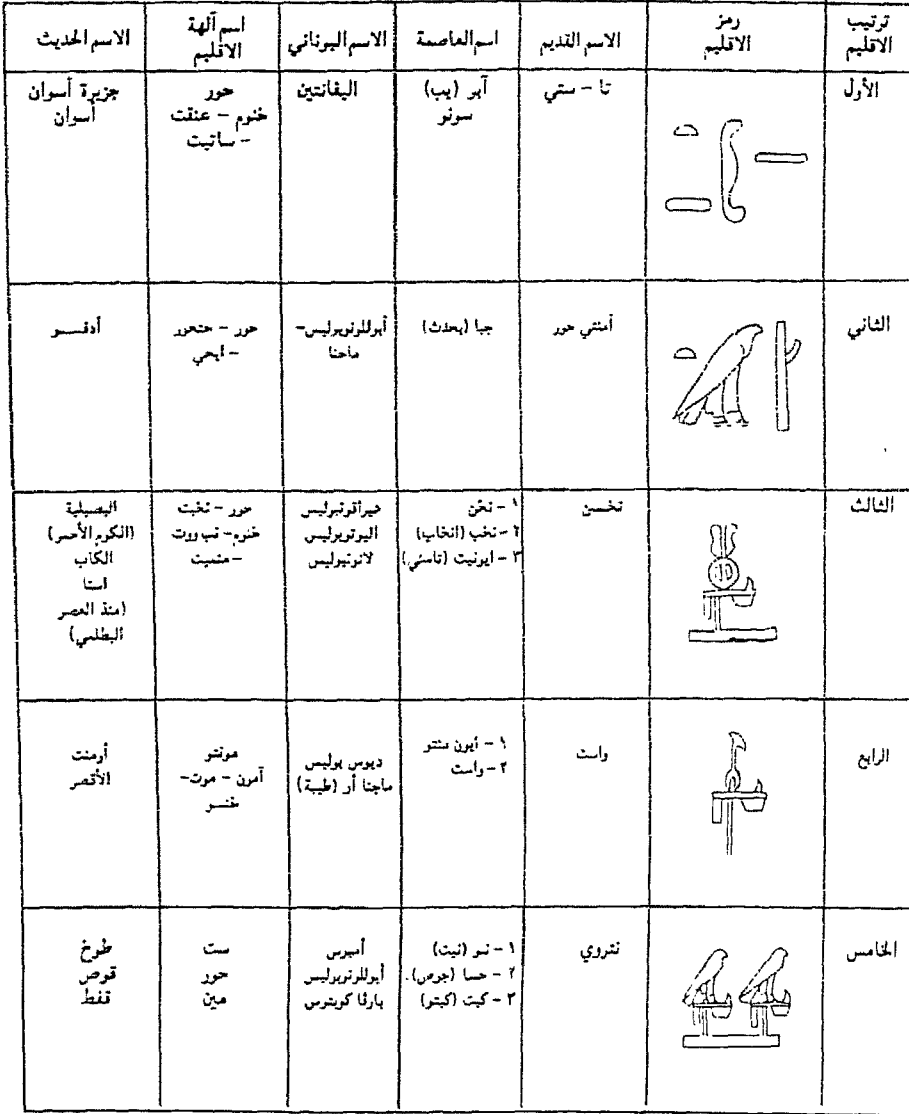 ترتيب الاقليم
رمز الاقليم
الاسم القديم
اسم العاصمة
الاسم اليوناني
اسم آلهة الاقليم
الاسم الحديث
الأول
تا - ستي
آبر (يب)
سونو
اليفانتين
حور
خنوم - عنقت
- ساتيت
جزيرة أسوان
أسوان
الثاني
أمنتي حور
جبا (بحدث)
أبوللونوبوليس-
ماجنا
حور - حتحور
- ايحي
أدفـــو
الثالث
نخـــن
١ - نخن
٢ - نخب (انخاب)
٣ - ايونيت (تاسني)
هيراقونبوليس
اليوتوبوليس
لاتوتبوليس
حور - نخبت
خنوم - نب ووت
- منحيت
البصيلية
(الكوم الأحمر)
الكاب
اسنا
(منذ العصر
البطلمي)
الرابع
واست
١ - أيون منتو
٢ - واست
ديوس بوليس
ماجنا أر (طيبة)
مونتو
آمون - موت-
خنـــو
أرمنت
الأقصر
الخامس
نتروي
١ - نبو (نيت)
٢ - حسا (جوص).
٣ - كبت (كبتو)
أمبوس
أبوللونوبوليس
بارفا كوبتوس
ست
حور
مين
طوخ
قوص
قفط